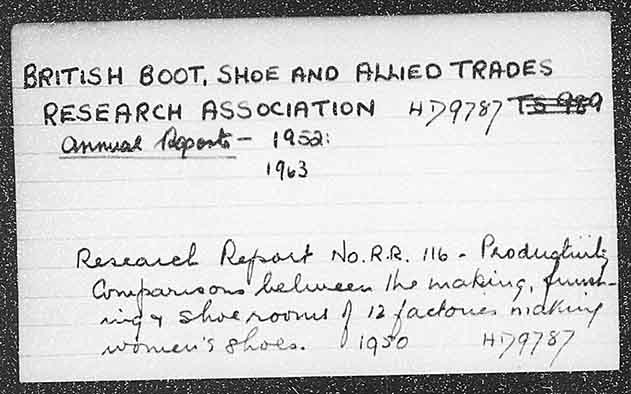 BRITISH BOOT, SHOE AND ALLIED TRADES
RESEARCH ASSOCIATION HD9787 TS 989
Annual Reports - 1952:
1963
Research Report No. R.R. 116 - Productivity
Comparisons between the making, finish-
ing & shoe rooms of 12 factories making
women's shoes. 1950 HD9787